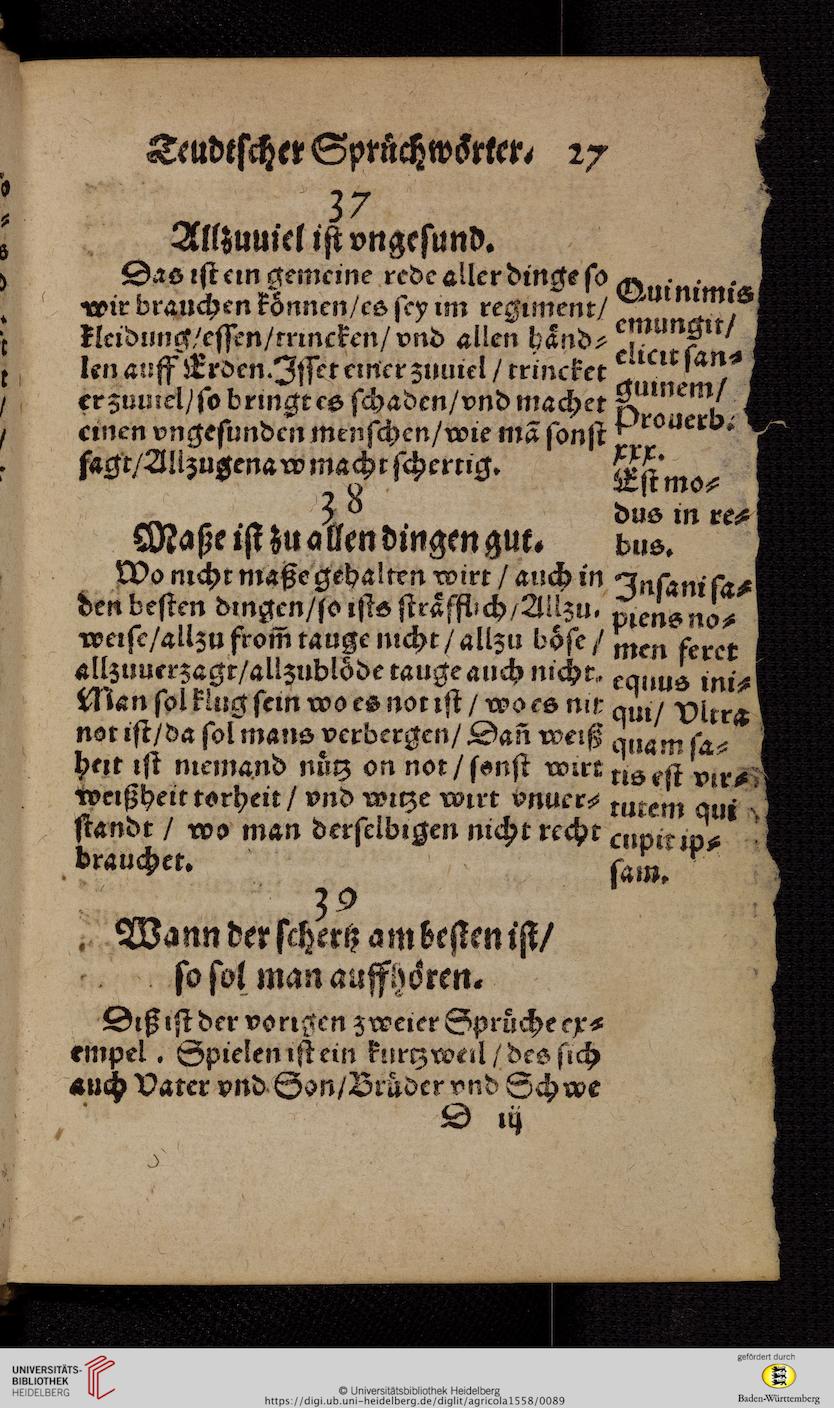 Teudtscher Sprüchwörter. 27
37
Allzuuiel ist vngesund.
Das ist ein gemeine rede aller dinge so
wir brauchen können/es sey im regiment/
kleidung/essen/trincken/ vnd allen händ⸗
len auff Erden. Isset einer zuuiel / trincket
er zuuiel/so bringt es schaden/vnd machet
einen vngesunden menschen/wie mã sonst
sagt/Allzugenaw macht schertig.
Qui nimis
emungit/
elicit san⸗
guinem/
Prouerb.
xxx.
38
Maße ist zu allen dingen gut.
Wo nicht maße gehalten wirt / auch in
den besten dingen/so ists sträfflich/Allzu.
weise/allzu from̃ tauge nicht / allzu böse /
allzuuerzagt/allzublöde tauge auch nicht.
Man sol klug sein wo es not ist / wo es nit
not ist/da sol mans verbergen/ Dañ weiß
heit ist niemand nütz on not / sonst wirt
weißheit torheit / vnd witze wirt vnuer⸗
standt / wo man derselbigen nicht recht
brauchet.
Est mo⸗
dus in re⸗
bus.
Insani sa⸗
piens no⸗
men feret
equus ini⸗
qui/ Vltra
quam sa⸗
tis est vir⸗
tutem qui
cupit ip⸗
sam.
39
Wann der schertz am besten ist/
so sol man auffhören.
Diß ist der vorigen zweier Sprüche ex⸗
empel . Spielen ist ein kurtzweil / des sich
auch Vater vnd Son/Brüder vnd Schwe
D iij
UNIVERSITÄTS-
BIBLIOTHEK
HEIDELBERG
© Universitätsbibliothek Heidelberg
https://digi.ub.uni-heidelberg.de/diglit/agricola1558/0089
gefördert durch
Baden-Württemberg